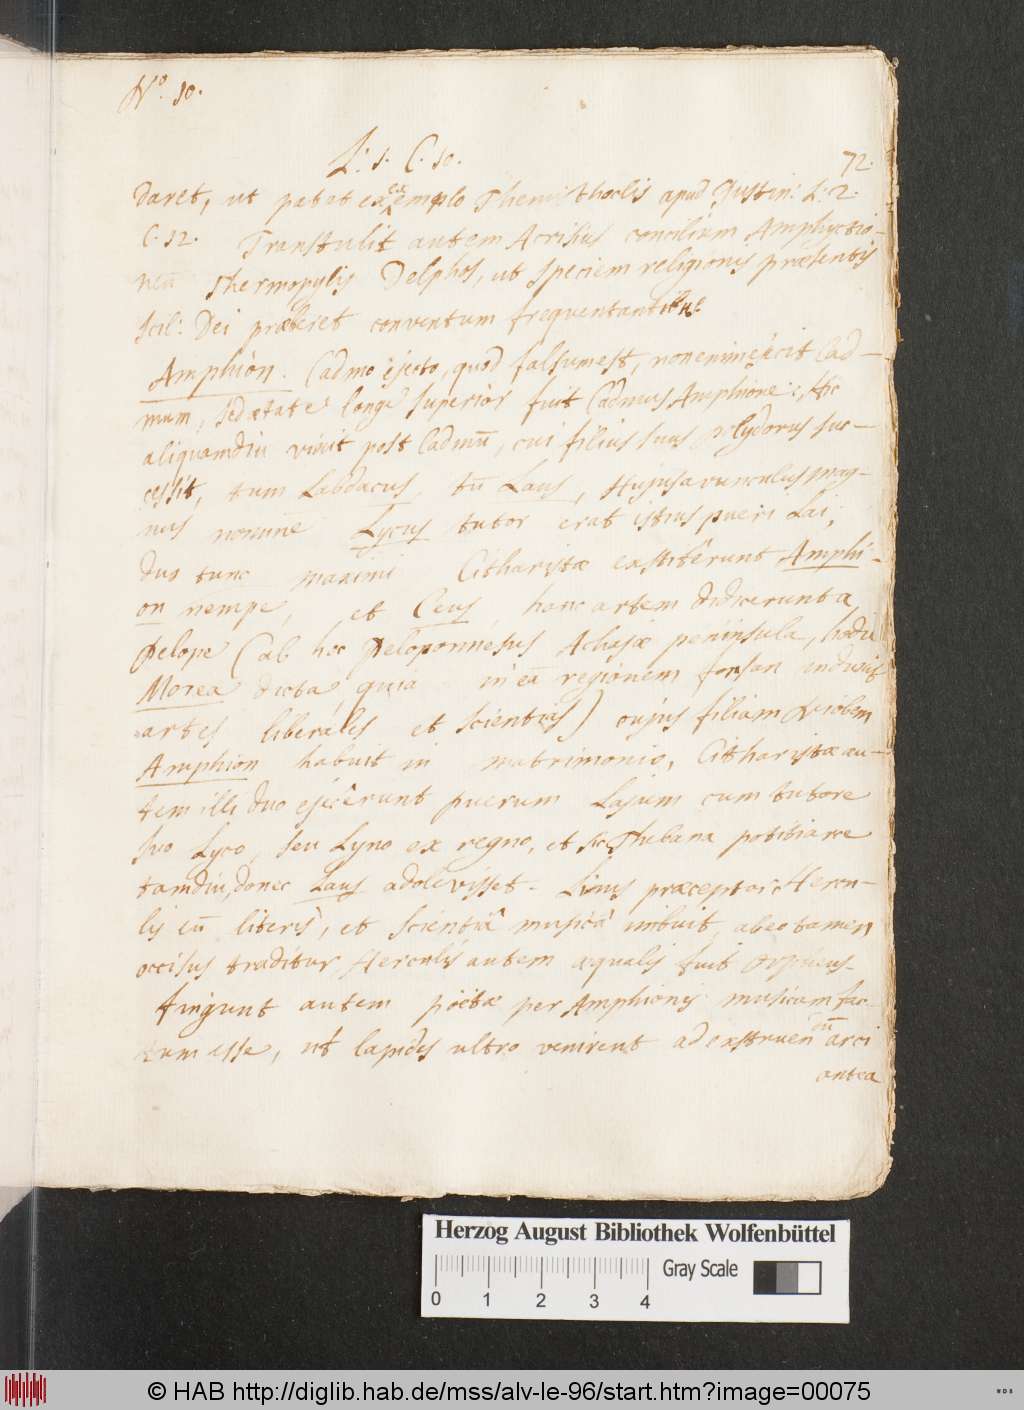 No. 10.
L. 1. C. 10.
72.
daret, ut patet exemplo Themisthoclis apud Justin: L: 2.
C. 12. Transtulit autem Acrisius concilium Amphyctio-
neū Thermopylis Delphos, ut speciem religionis præsentis
scil: Dei præberet conventum frequentantibus
Amphion. Cadmo ejecto, quod falsum est, non enim ejecit Cad-
mum, sed ætate longe superior fuit Cadmus Amphione, Hic
aliquamdiu vixit post Cadmū, cui filius suus Polydorus suc-
cessit, tum Labdacus, tū Laius, Hujus avunculus mag-
nus nomine Lycus tutor erat istius pueri Lai,
duo tunc maximi Citharistæ exstitêrunt Amphi-
on nempe, et Ceus hanc artem didicerunt a
Pelope (ab hoc Peloponnesus Achajæ peninsula, hodie
Morea dicta, quia in eā regionem forsan induxit
artes liberales et scientias) cujus filiam Niobem
Amphion habuit in matrimonio, Citharistæ au-
tem illi duo ejecêrunt puerum Lajum cum tutore
suo Lyco, seu Lyno ex regno, et sic Thebana potiti arce
tamdiu, donec Laius adolevisset. Linus præceptor Hercu-
lis eū literis, et scientiâ musicâ imbuit, ab eo tamen
occisus traditur Herculis autem æqualis fuit Orpheus.
fingunt autem poëtæ per Amphionis musicam fac-
tum esse, ut lapides ultro venirent ad exstruendū arci
antea
Herzog August Bibliothek Wolfenbüttel
Gray Scale
0 1 2 3 4
© HAB http://diglib.hab.de/mss/alv-le-96/start.htm?image=00075